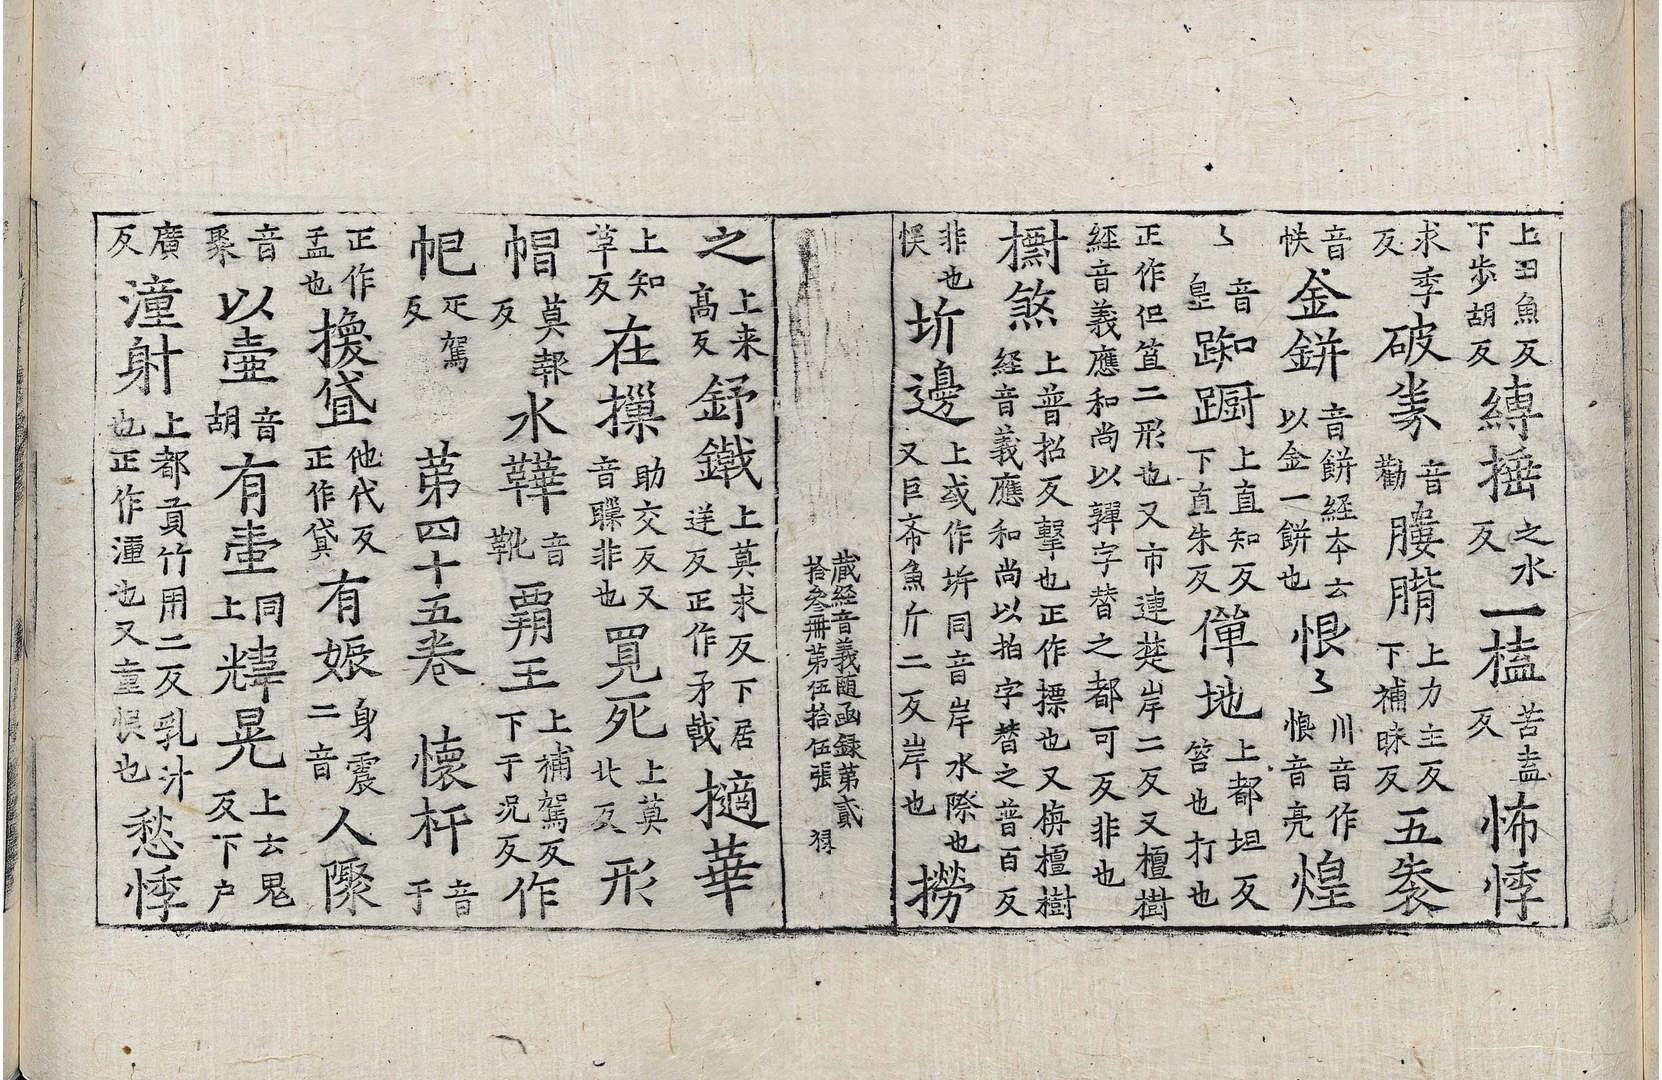 上魚反下步胡反縛捶之水反一榼苦盍反怖悸
求季反破㧖音勸膢腊上力主反下補昧反五袠
音帙金鉼音餅經本云以金一餅也恨〻川音作悢音亮煌
〻音皇踟蹰上直知反下直朱反僤地上都坦反笞也打也
正作但笪二形也又市連楚岸二反又檀樹經音義應和尚以嚲字替之都可反非也
㯡煞上普招反擊也正作摽也又栴檀樹經音義應和尚以拍字替之普百反
非也悮圻邊上或作垿同音岸水際也又巨斎魚斤二反岸也撈
藏經音義随函録第貳拾叄册第伍拾伍張
之上来髙反鈼鐵上莫求反下居逆反正作矛戟擿華
上知草反在摷助交反又音䂃非也覓死上莫北反形
帽莫報反水鞾音靴覇王上補駕反下于况反作
帊疋駕反第四十五卷懷杅音于
正作孟也換貣他代反正作貸有娠身震二音人隳
音聚以壷音胡有壷同上煒晃上云鬼反下户
廣反湩射上都貢竹用二反乳汁也正作湩也又童恨也愁悸